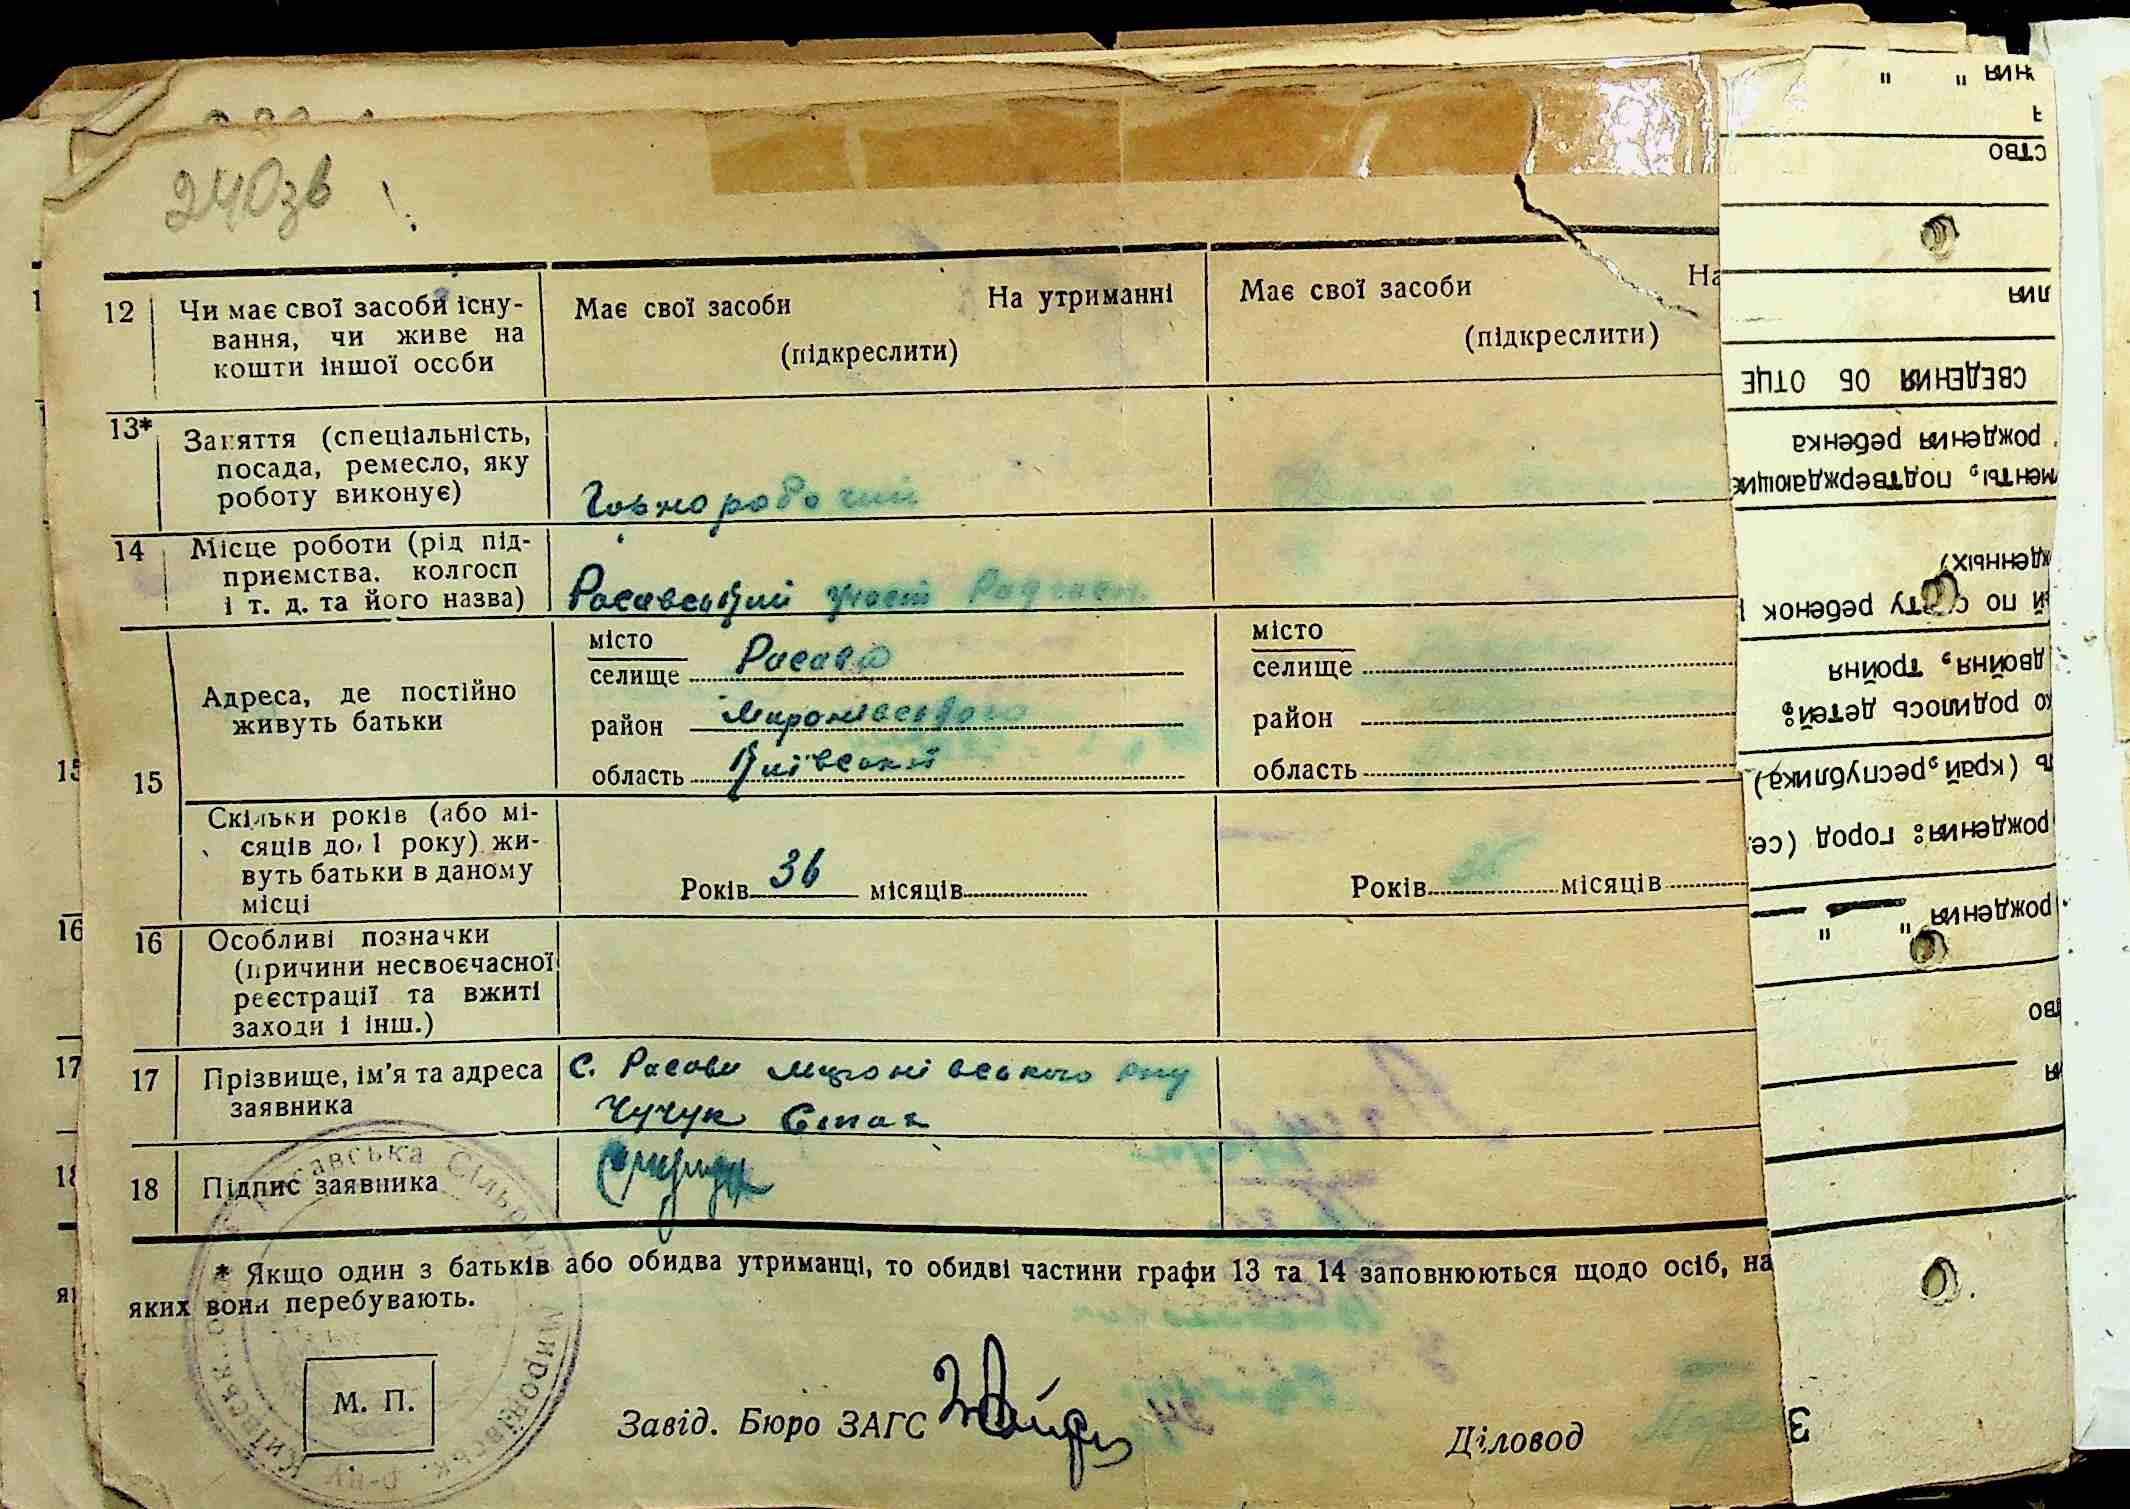 240зв
12 Чи має свої засоби існу-
вання, чи живе на
кошти іншої особи
Має свої засоби На утриманні
(підкреслити)
Має свої засоби На
(підкреслити)
13* Заняття (спеціальність,
посада, ремесло, яку
роботу виконує)
Чорноробочий
14 Місце роботи (рід під-
приємства, колгосп
і т. д. та його назва)
Расавський
15
Адреса, де постійно
живуть батьки
місто
селище Расава
район Миронівського
область Київської
місто
селище
район
область
Скільки років (або мі-
сяців до 1 року) жи-
вуть батьки в даному
місці
Років 36 місяців
Років 36 місяців
16 Особливі позначки
(причини несвоєчасної
реєстрації та вжиті
заходи і інш.)
17 Прізвище, ім'я та адреса
заявника
с. Расави Миронівського р-ну
Чучук Степан
18 Підпис заявника
* Якщо один з батьків або обидва утриманці, то обидві частини графи 13 та 14 заповнюються щодо осіб, на
яких вони перебувають.
М. П.
Завід. Бюро ЗАГС
Діловод
Расавська Сільрада Миронівськ. р-ну Київськ.
15
16
17
18
рождения " "
во
ия
рождения: город (се
ь (край, республика)
ко родилось детей:
двойня, тройня
й по счету ребенок
жденных)
менты, подтверждающие
рождения ребенка
СВЕДЕНИЯ ОБ ОТЦЕ
лия
ство
я
ния " "
З